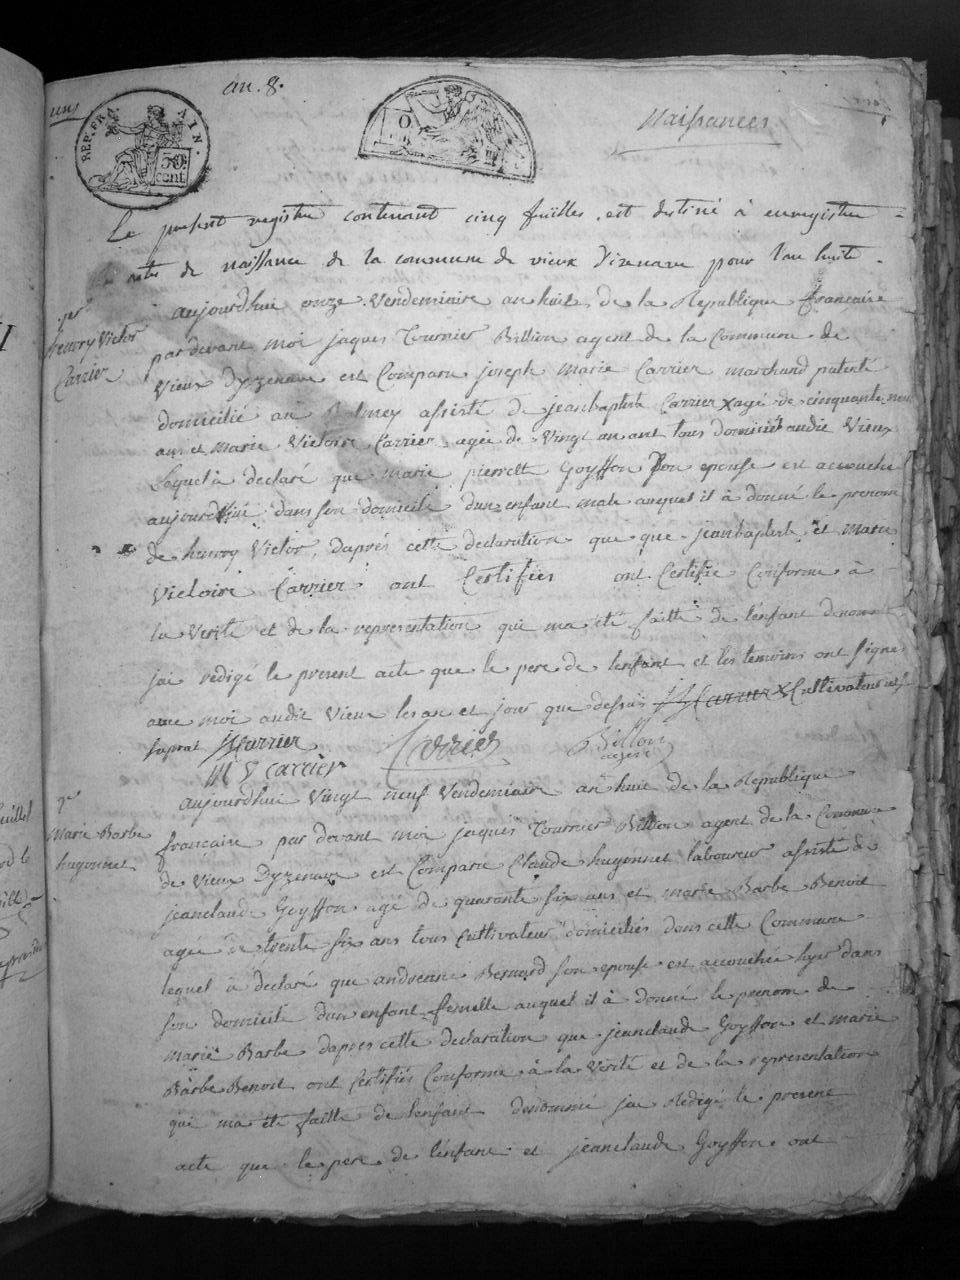 an. 8.
REP. FRA. AIN.
50 cent
Naissances
Le present registre contenant cinq feüilles, est destiné à enregistrer
actes de naissance de la commune de vieux d'izenave pour l'an huit.
1er
henry Victor
Carrier
aujourdhui onze Vendemiaire an huit de la Republique française
par devant moi jaques Tournier Billion agent de la Commune de
Vieux Dyzenave est Comparu joseph Marie Carrier marchand patenté
domicilié au Balmey assisté de jeanbaptiste Carrier X agé de cinquante neuf
ans et Marie Victoire Carrier agée de Vingt un ans tous domicilié audit Vieux
Lequel à declaré que marie pierrette Goyffon Son epouse est accouchée
aujourdhui dans son domicile dun enfant male auquel il à donné le prenom
de henry Victor, daprès cette declaration que que jeanbaptiste et Marie
Victoire Carrier ont Certifiés ont Certifié Conforme à
la Verité et de la representation qui ma été faitte de lenfant denommé
jai redigé le present acte que le pere de lenfant et les temoins ont signé
avec moi audit Vieux les an et jour que dessus X Cultivateur
JJ Carrier Carrier Billion
M V carrier agent
2e
Marie Barbe
hugonnet
aujourdhui Vingt neuf Vendemiaire an huit de la Republique
francaise par devant moi jaques Tournier Billion agent de la Commune
de Vieux Dyzenave est Comparu Claude hugonnet laboureur assisté de
jeanclaude Goyffon agé de quarante six ans et marie Barbe Benoit
agée de trente six ans tous Cultivateur domiciliés dans cette Commune
lequel à declaré que andreanne Bernard son epouse est accouchée hyer dans
son domicile dun enfant femelle auquel il à donné le prenom de
marie Barbe dapres cette declaration que jeanclaude Goyffon et marie
Barbe Benoit ont Certifiés Conforme à la Verité et de la representation
qui ma été faitte de lenfant denommé jai Redigé le present
acte que le pere de lenfant et jeanclaude Goyffon ont